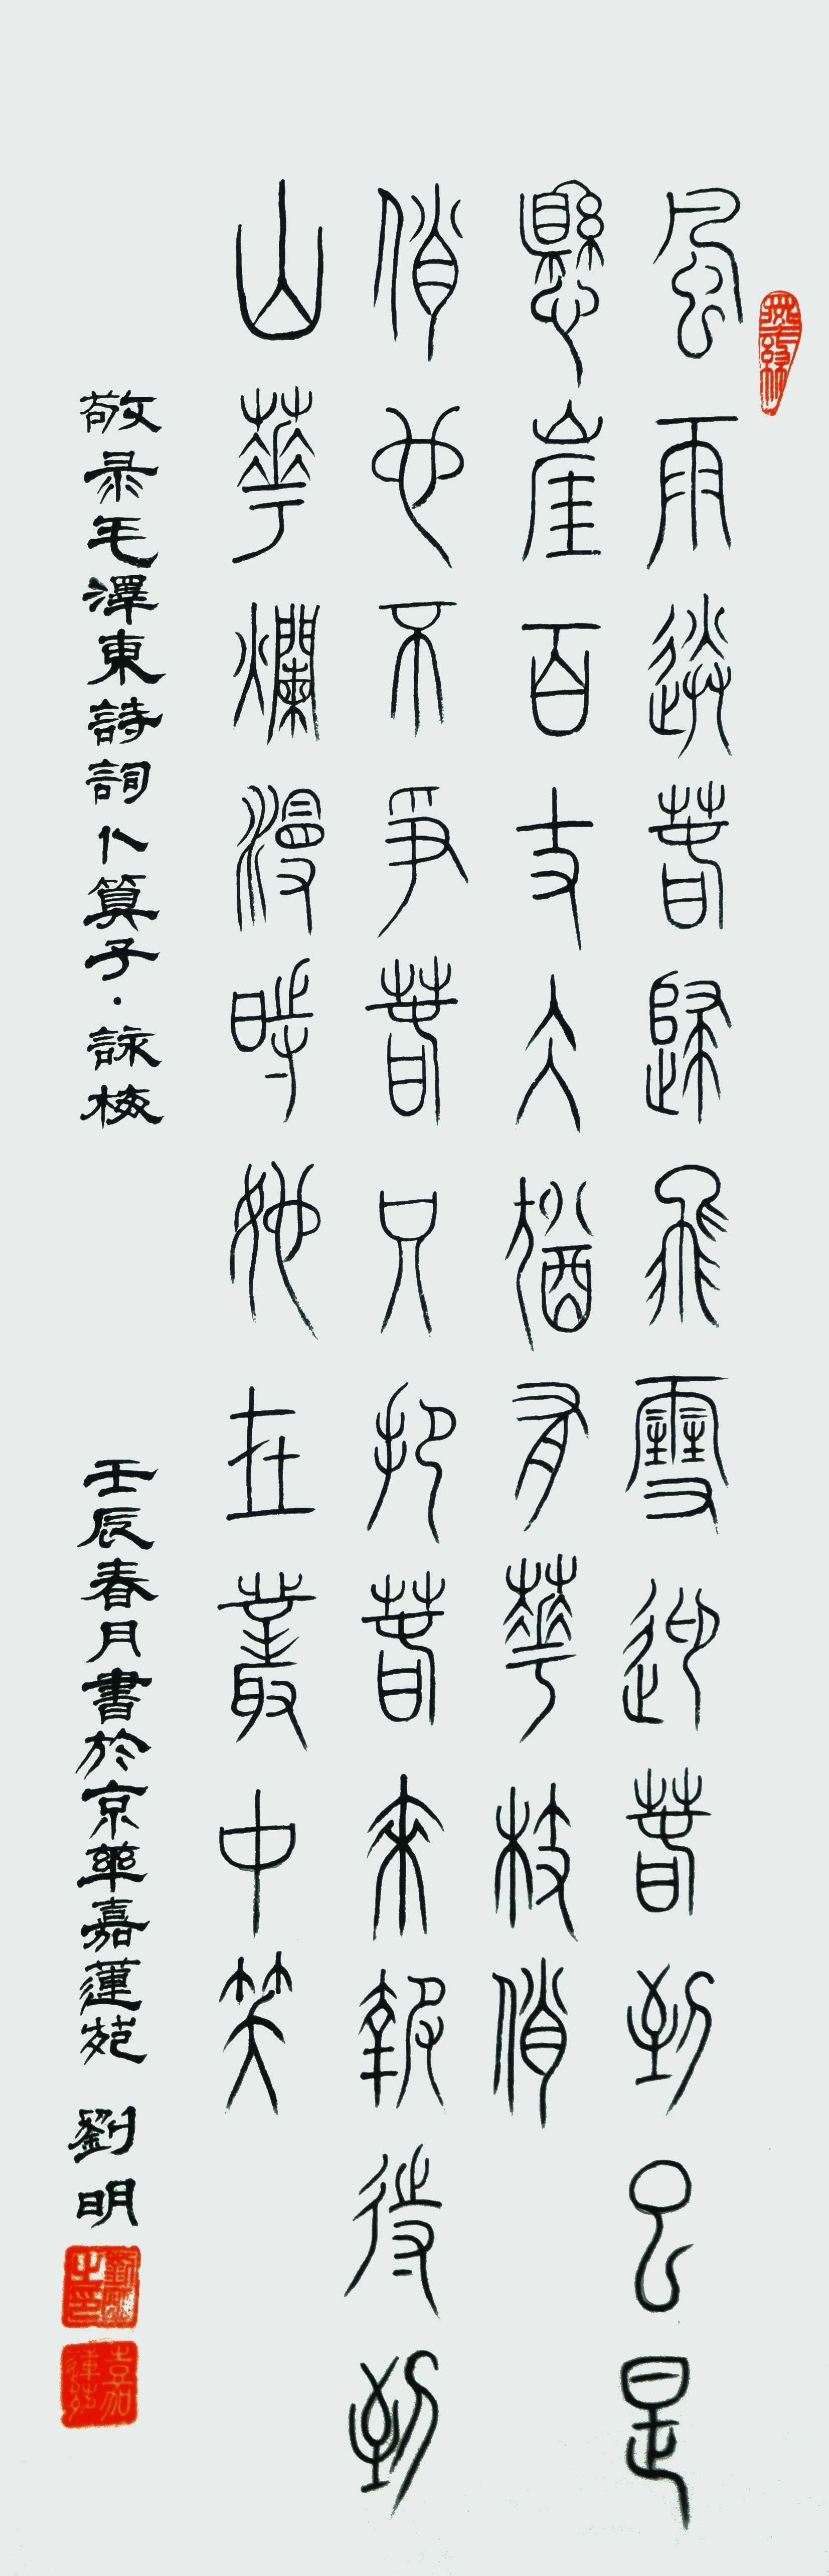 風雨送春歸飛雪迎春到已是
懸崖百丈冰猶有華枝俏
俏也不爭春只把春來報待到
山華爛漫時她在叢中笑
敬录毛澤東詩詞卜算子·詠梅 壬辰春月書於京華嘉蓮苑 劉明
劉明之印
嘉蓮苑